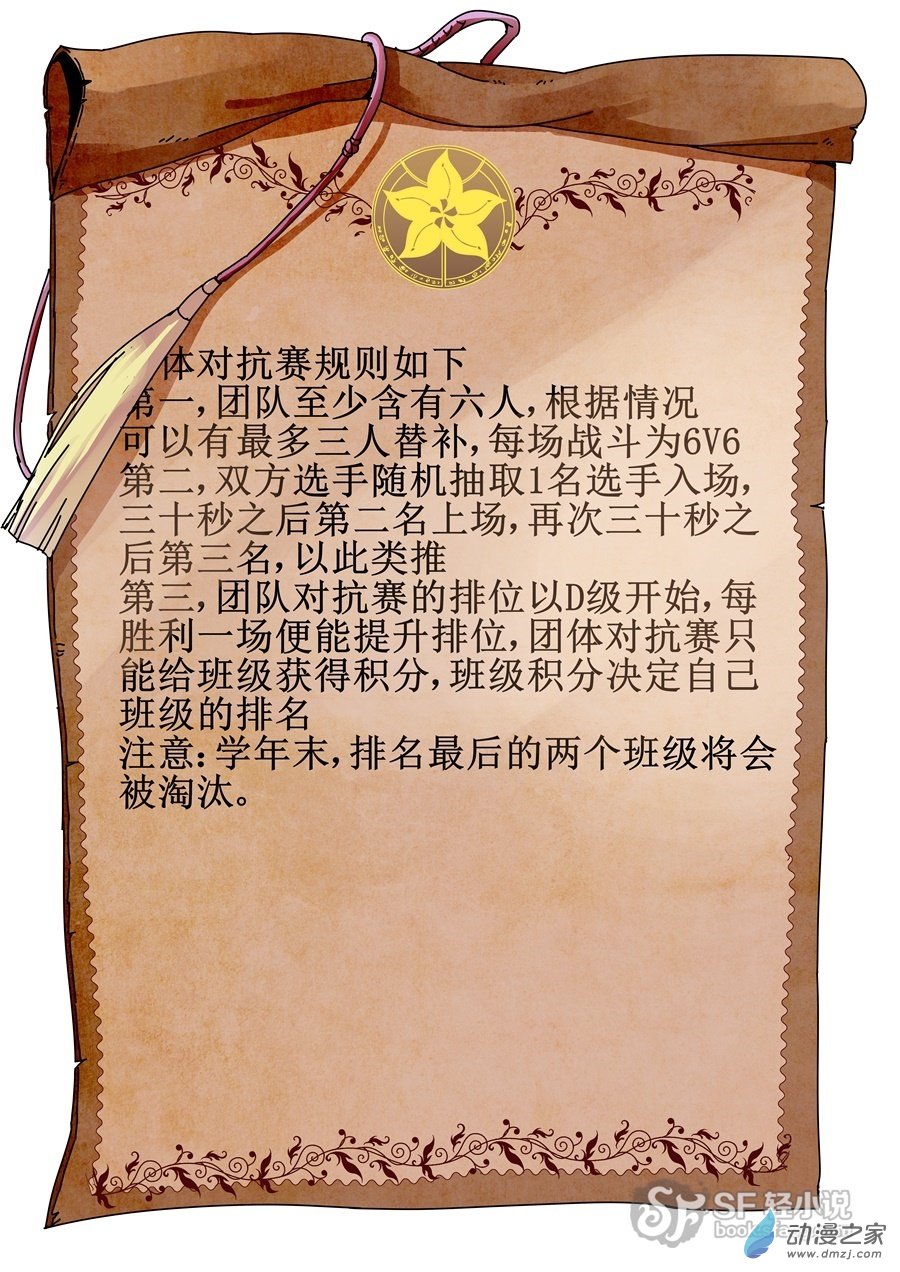 体对抗赛规则如下
第一,团队至少含有六人,根据情况
可以有最多三人替补,每场战斗为6V6
第二,双方选手随机抽取1名选手入场,
三十秒之后第二名上场,再次三十秒之
后第三名,以此类推
第三,团队对抗赛的排位以D级开始,每
胜利一场便能提升排位,团体对抗赛只
能给班级获得积分,班级积分决定自己
班级的排名
注意:学年末,排名最后的两个班级将会
被淘汰。
SF 轻小说
动漫之家
www.dmzj.com